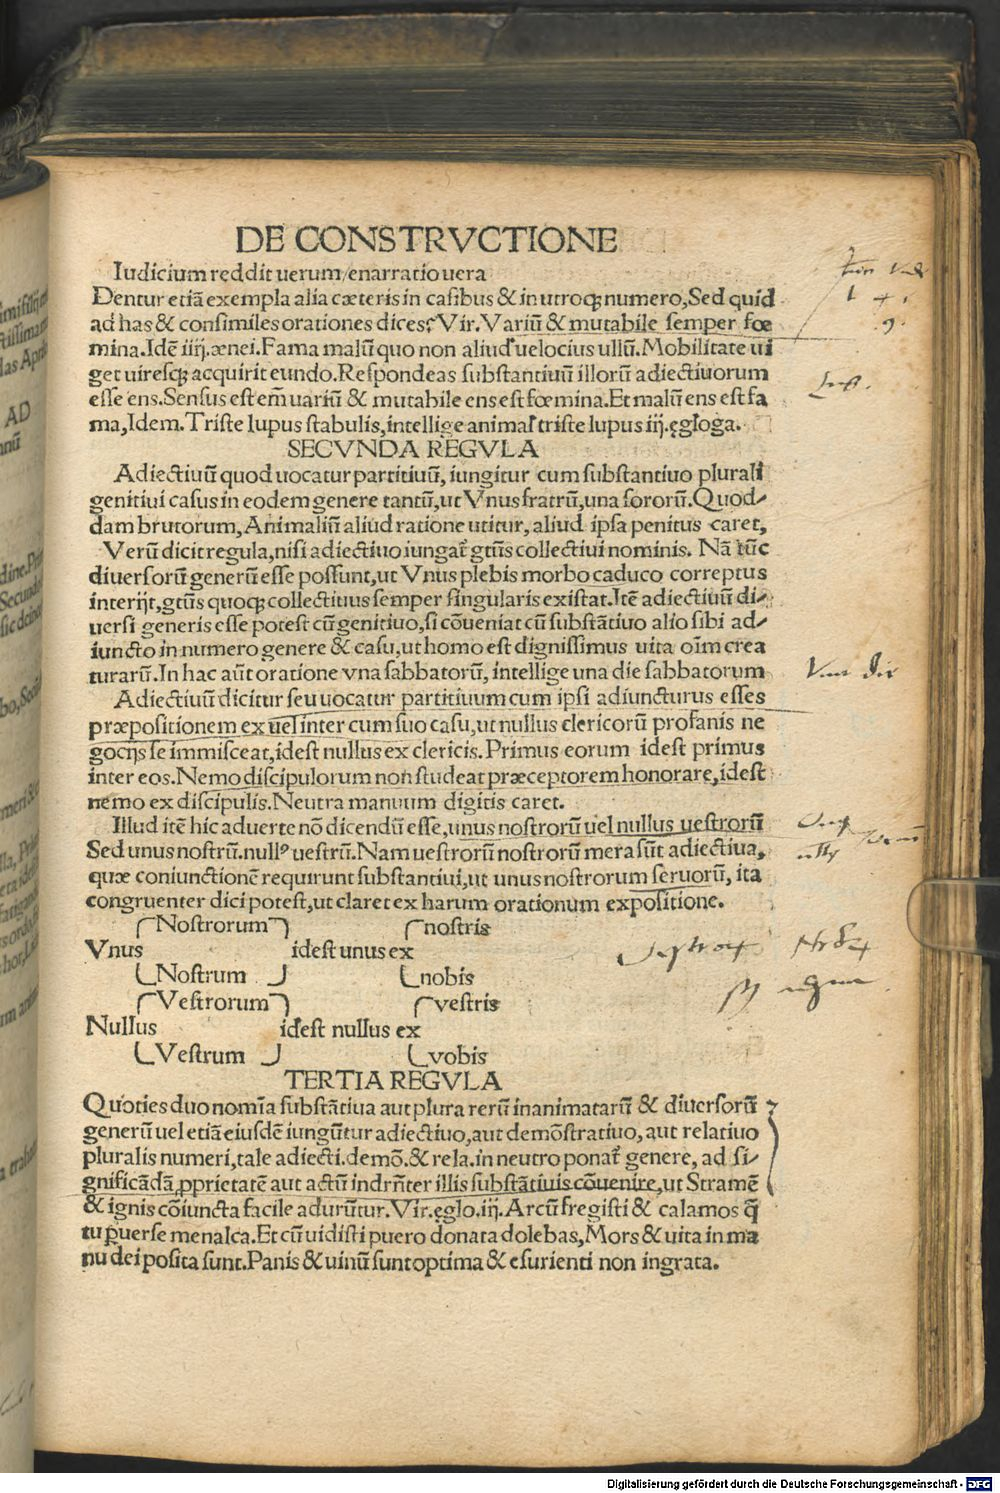 DE CONSTRVCTIONE
Iudicium reddit uerum/enarratio uera
Dentur etiā exempla alia cæteris in casibus & in utroq; numero, Sed quid
ad has & consimiles orationes dices? Vir. Variū & mutabile semper fœ
mina. Idē iiij. ænei. Fama malū quo non aliud uelocius ullū. Mobilitate ui
get uiresq; acquirit eundo. Respondeas substantiuū illorū adiectiuorum
esse ens. Sensus est em̄ uariū & mutabile ens est fœmina. Et malū ens est fa
ma, Idem. Triste lupus stabulis, intellige animal triste lupus iij. ęgloga.
SECVNDA REGVLA
Adiectiuū quod uocatur partitiuū, iungitur cum substantiuo plurali
genitiui casus in eodem genere tantū, ut Vnus fratrū, una sororū. Quod-
dam brutorum, Animaliū aliud ratione utitur, aliud ipsa penitus caret,
Verū dicit regula, nisi adiectiuo iungat̄ gtūs collectiui nominis. Nā tūc
diuersorū generū esse possunt, ut Vnus plebis morbo caduco correptus
interijt, gtūs quoq; collectiuus semper singularis existat. Itē adiectiuū di-
uersi generis esse potest cū genitiuo, si cōueniat cū substātiuo alio sibi ad-
iuncto in numero genere & casu, ut homo est dignissimus uita oīm crea
turarū. In hac aūt oratione vna sabbatorū, intellige una die sabbatorum
Adiectiuū dicitur seu uocatur partitiuum cum ipsi adiuncturus esses
præpositionem ex uel inter cum suo casu, ut nullus clericorū profanis ne
gocijs se immisceat, idest nullus ex clericis. Primus eorum idest primus
inter eos. Nemo discipulorum non studeat præceptorem honorare, idest
nemo ex discipulis. Neutra manuum digitis caret.
Illud itē hic aduerte nō dicendū esse, unus nostrorū uel nullus uestrorū
Sed unus nostrū. null⁹ uestrū. Nam uestrorū nostrorū mera sūt adiectiua,
quæ coniunctionē requirunt substantiui, ut unus nostrorum seruorū, ita
congruenter dici potest, ut claret ex harum orationum expositione.
Nostrorum nostris
Vnus idest unus ex
Nostrum nobis
Vestrorum vestris
Nullus idest nullus ex
Vestrum vobis
TERTIA REGVLA
Quoties duo nomīa substātiua aut plura rerū inanimatarū & diuersorū
generū uel etiā eiusdē iungūtur adiectiuo, aut demōstratiuo, aut relatiuo
pluralis numeri, tale adiecti. demō. & rela. in neutro ponat̄ genere, ad si-
gnificādā ꝓprietatē aut actū indrn̄ter illis substātiuis cōuenire, ut Stramē
& ignis cōiuncta facile adurūtur. Vir. ęglo. iij. Arcū fregisti & calamos q̄
tu ꝑuerse menalca. Et cū uidisti puero donata dolebas, Mors & uita in ma
nu dei posita sunt. Panis & uinū sunt optima & esurienti non ingrata.
Digitalisierung gefördert durch die Deutsche Forschungsgemeinschaft - DFG